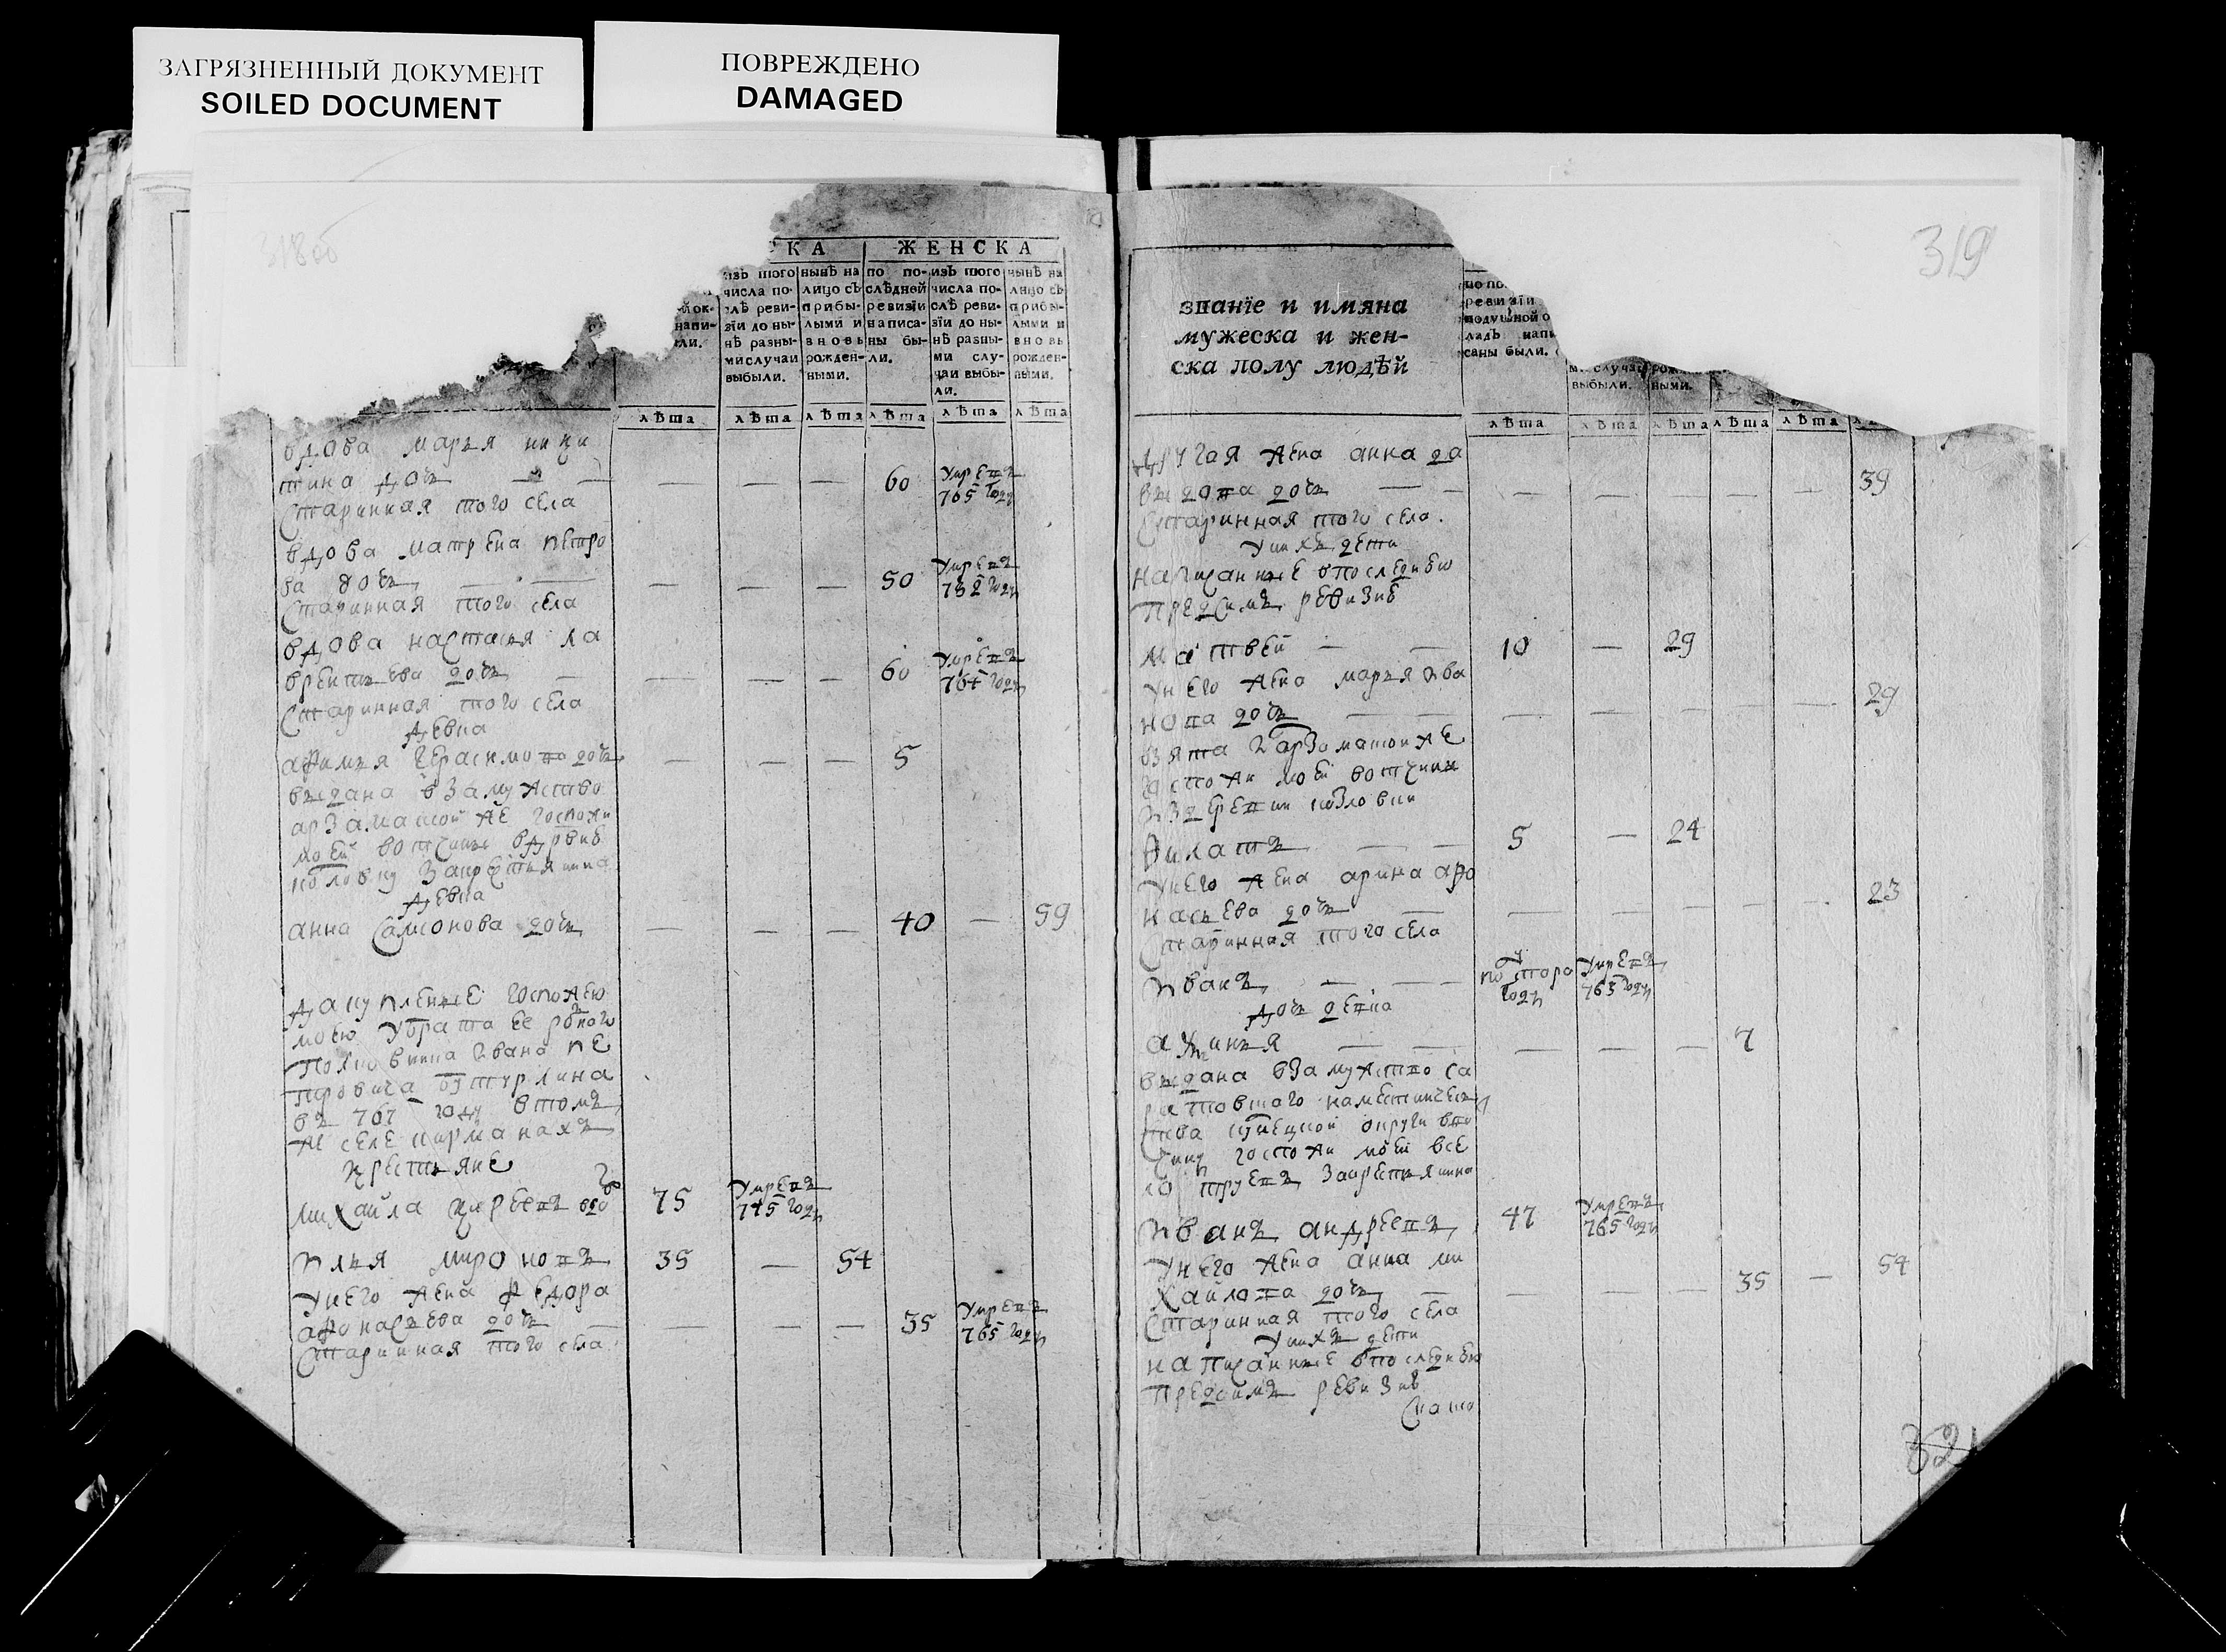 ЗАГРЯЗНЕННЫЙ ДОКУМЕНТ
SOILED DOCUMENT
ПОВРЕЖДЕНО
DAMAGED
318об
КА ЖЕНСКА
изъ того числа по- слѣ реви- зїи до ны- нѣ разны- ми случаи выбыли.
нынѣ на лицо съ прибы- лыми и вновь рожден- ными.
по по- слѣдней ревизїи написа- ны бы- ли.
изъ того числа по- слѣ реви- зїи до ны- нѣ разны- ми слу- чаи выбы- ли.
нынѣ на лицо съ прибы- лыми и вновь рожден- ными.
лѣта лѣта лѣта лѣта лѣта лѣта
вдова марья ники
тина дочь — — — — — 60 умрепъ
765 году
Старинная того села
вдова матрена петро
ва дочь — — — — — 50 умрепъ
782 году
Старинная того села
вдова настасья ла
врентьева дочь — — — — 60 умрепъ
764 году
Старинная того села
девка
афимья герасимова дочь — — — 5
выдана взамужство
арзамаской же госпожи
моей вотчины вдрвнѣ
козловку закрстьянина
девка
анна самсонова дочь — — — 40 — 59
дакупленные госпожею
моею убрата ее родного
полковника ивана пе
тровича бутурлина
въ 767 году втомъ
же селе кирманахъ
крестьяне
михайла киреевъ 75 умрепъ
775 году
илья миро новъ 35 — 54
унего жена федора
афонасьева дочь — — — — 35 умрепъ
765 году
Старинная того села
319
званїе и имяна
мужеска и жен-
ска полу людѣй
по по
ревизїи
подушной о
ладъ напи
саны были.
случаи
выбыли.
рож
ными.
лѣта лѣта лѣта лѣта лѣта
другая жена анна да
выдова дочь — — — — — — — 39
Старинная того села.
унихъ дети
написанные впоследнѣю
предсимъ ревизиѣ
матвей — — 10 — 29
унего жена марья ива
нова дочь — — — — — — — 29
взята изарзамаской же
госпожи моей вотчины
издеревни козловки
Филатъ — — 5 — 24
унего жена арина афо
насьева дочь — — — — — — — 23
Старинная того села
иванъ — — полтора
году умрепъ
763 году
дочь девка
аксинья — — — — — 7
выдана взамужство са
ратовшаго наместничес
тва кунецкой округи вво
чину госпожи моей все
закрестьянина
иванъ андреевъ 47 умрепъ
765 году
унего жена анна ми
хайлова дочь — — — — 35 — 54
Старинная того села
унихъ дети
написанные впоследнѣю
предсимъ ревизиѣ
321